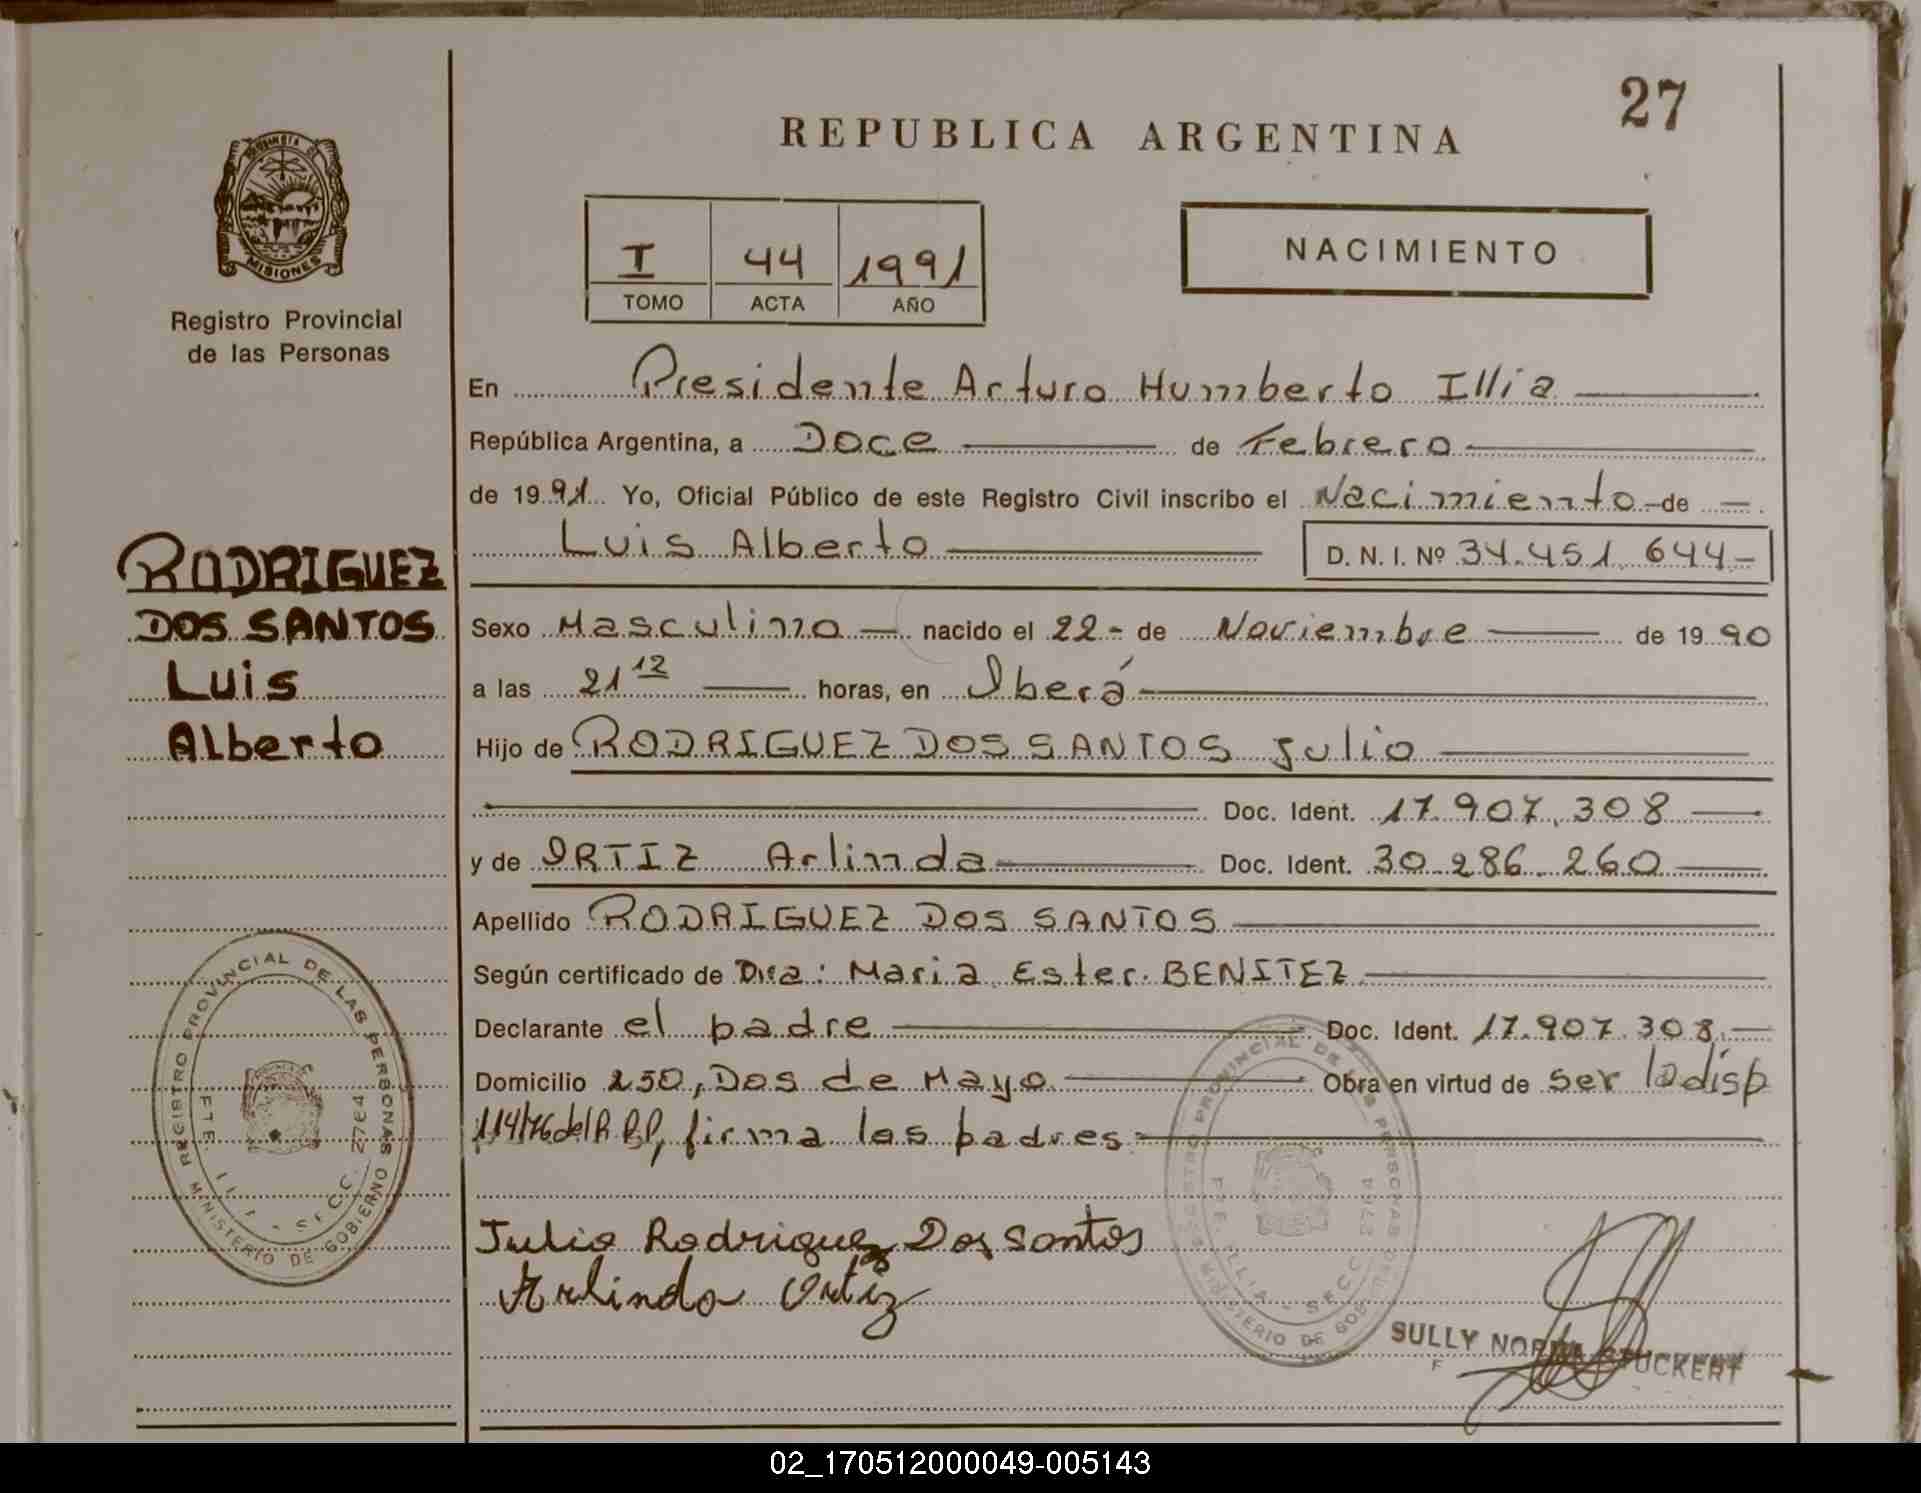 27
REPUBLICA ARGENTINA
MISIONES
Registro Provincial
de las Personas
I 44 1991
TOMO ACTA AÑO
NACIMIENTO
En Presidente Arturo Humberto Illia
República Argentina, a Doce de Febrero
de 1991 Yo, Oficial Público de este Registro Civil inscribo el Nacimiento de
Luis Alberto D. N. I. Nº 34.451.644-
RODRIGUEZ
DOS SANTOS
Luis
Alberto
Sexo Masculino nacido el 22- de Noviembre de 1990
a las 21 12 horas, en Iberá
Hijo de RODRIGUEZ DOS SANTOS Julio
Doc. Ident. 17.907.308
y de ORTIZ Arlinda Doc. Ident. 30.286.260
Apellido RODRIGUEZ DOS SANTOS
Según certificado de Dra: Maria Ester BENITEZ
Declarante el padre Doc. Ident. 17.907.308
Domicilio 250, Dos de Mayo Obra en virtud de ser la disp
114/76 del R.P.P, firma los padres
REGISTRO PROVINCIAL DE LAS PERSONAS
MINISTERIO DE GOBIERNO
Julio Rodriguez Dos Santos
Arlinda Ortiz
REGISTRO PROVINCIAL DE LAS PERSONAS
MINISTERIO DE
SULLY NORMA STUCKERT
02_170512000049-005143